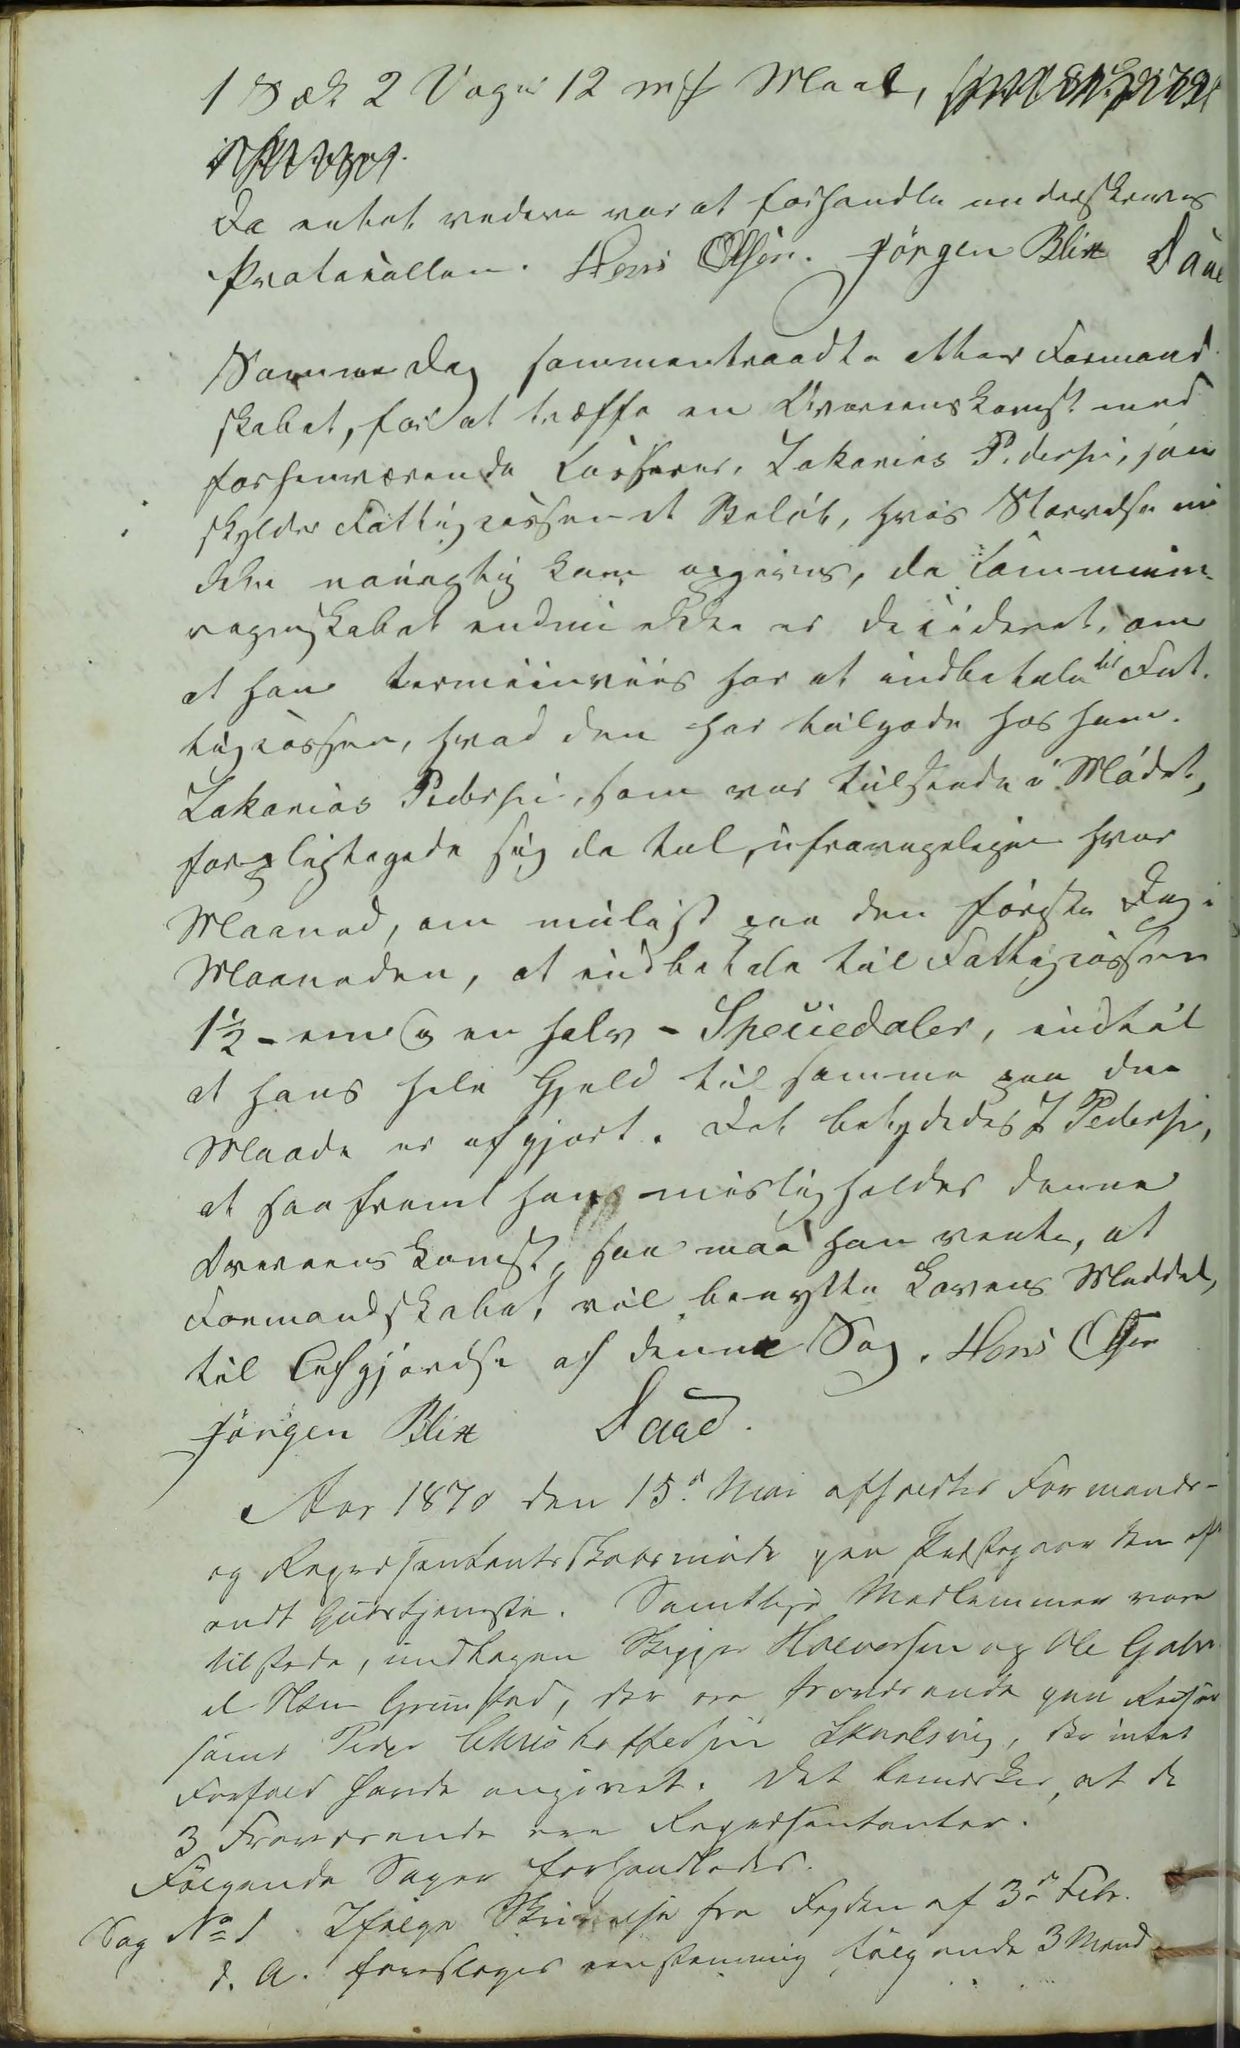 1 Sæk 2 Voger 12 mk Meel,
Da entet videre var at forhandle underskreves
Protocollen. Hans Olsen. Jörgen Blix Daae
Samme Dag sammentraadte atter Formand
skabet, for at træffe en Overeenskomst med
forhenværende Casserer, Zakarias Pedersen, som
skylder Fattigcassen et Beløb, hvis Størrelse nu
ikke nøiagtig kan opgives, da Commune-
regnskabet endnu ikke er decideret, om
at han terminviis har at indbetale til Fat-
tigcassen, hvad den har tilgode hos ham.
Zakarias Pedersen, som var tilstede i Mødet,
forpligtegede sig da til, ufravigeligen hver
Maaned, om muligt paa den første Dag i
Maaneden, at indbetale til Fattigcassen
1½ - een og en halv - Speciedaler, indtil
at hans hele Gjeld til samme paa den
Maade er afgjort. Det betydedes Z Pedersen,
at saafremt han misligholder denne
Overeenskomst, saa maa han vente, at
Formandskabet vil benytte Lovens Middel,
til Afgjørelse af denne Sag. Hans Olsen
Jörgen Blix Daae.
Aar 1870 den 15d Mai afholdtes Formands-
og Repræsentantskabsmøde paa Præstegaarden efter
endt Gudstjeneste. Samtlige Medlemmer vare
tilstede, undtagen Skipper Halvorsen og Ole Gabri
el Grimstad, der ere fraværende paa Reiser
samt Peder Christoffersen, der intet
Forfald havde angivet. Det bemærkes, at de
3 Fraværende ere Repræsentanter.
Følgende Sager forhandledes.
Sag No 1. Ifølge Skrivelse fra Fogden af 3die Febr.
d. A. foreslages eenstemmig følgende 3 Mænd